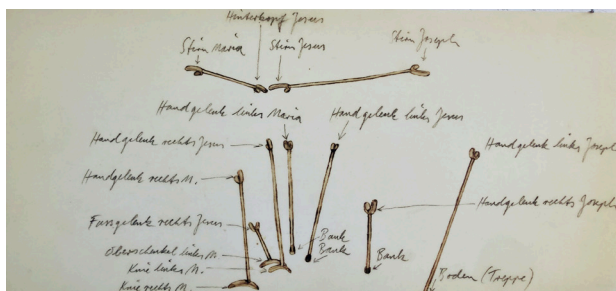 Hinterkopf Jesus
Stirn Maria
Stirn Jesus
Stirn Joseph
Handgelenk links Maria
Handgelenk links Jesus
Handgelenk rechts Jesus
Handgelenk links Joseph
Handgelenk rechts M.
Handgelenk rechts Joseph
Fussgelenk rechts Jesus
Oberschenkel links M.
Bank
Bank
Knie links M.
Bank
Knie rechts M.
Boden (Treppe)